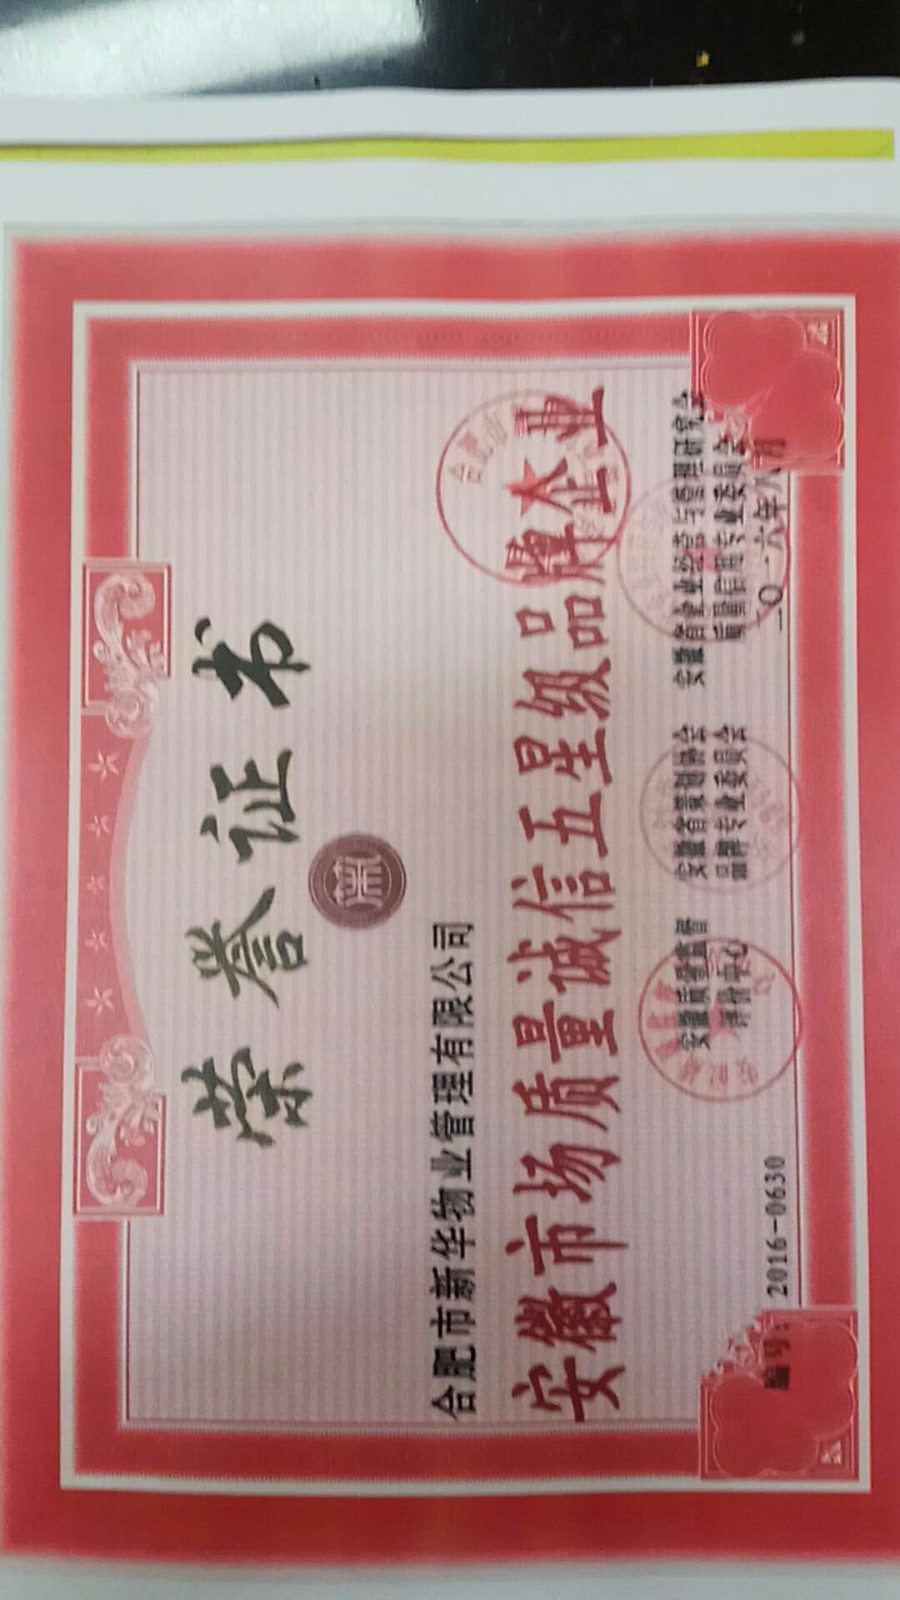 荣誉证书
合肥市新华物业管理有限公司
安徽市场质量诚信五星级品牌企业
安徽质量监督 安徽省策划协会 安徽省企业经营与管理研究会
评价中心 品牌专业委员会 质量信用专业委员会
编号: 2016-0630 二〇一六年八月
合肥市